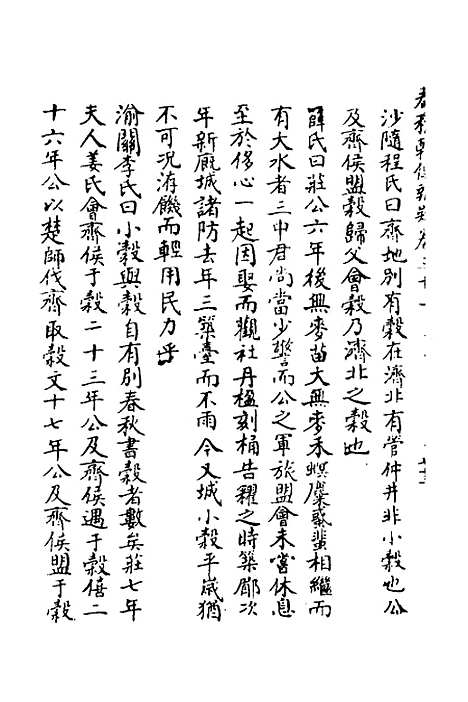 春秋
沙隨程氏曰齊地別有穀在濟北有管仲井非小穀也公
及齊侯盟穀歸父會穀乃濟北之穀也
薛氏曰莊公六年後無麥苗大無麥禾螟麋蜚相繼而
有大水者三中君尚當少警而公之軍旅盟會未嘗休息
至於侈心一起因娶而觀社丹楹刻桷告糴之時築郿次
年新廐城諸防去年三築臺而不雨今又城小穀平歲猶
不可況洊饑而輕用民力乎
渝關李氏曰小穀與穀自有別春秋書穀者數矣莊七年
夫人姜氏會齊侯于穀二十三年公及齊侯遇于穀僖二
十六年公以楚師伐齊取穀文十七年公及齊侯盟于穀